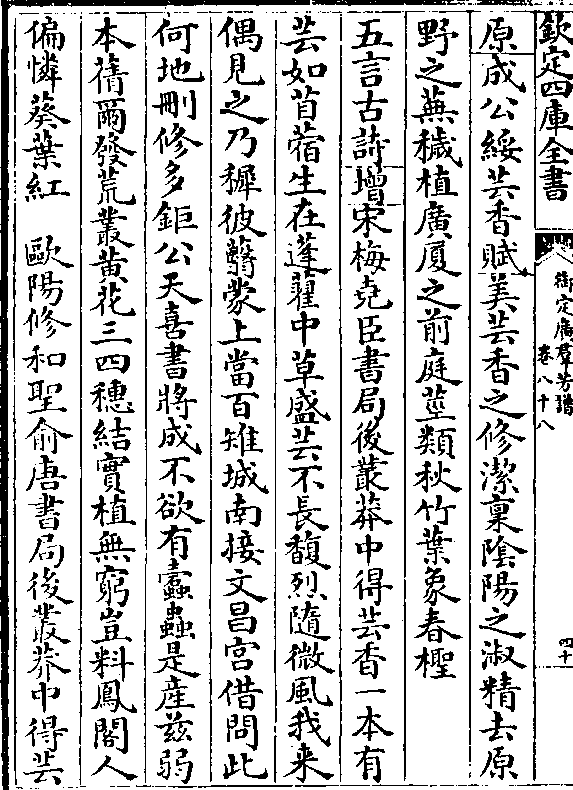 欽定四庫全書
御定廣群芳譜
卷八十八
四十
原成公綏芸香賦美芸香之修潔稟陰陽之淑精去原
野之蕪穢植廣厦之前庭莖類秋竹葉象春檉
五言古詩增宋梅堯臣書局後叢莽中得芸香一本有
芸如苜蓿生在蓬藋中草盛芸不長馥烈隨微風我来
偶見之乃穉彼蘙蒙上當百雉城南接文昌宫借問此
何地刪修多鉅公天喜書將成不欲有蠧蟲是産兹弱
本蒨爾發荒叢黄花三四穗結實植無窮豈料鳳閣人
偏憐葵葉紅 歐陽修和聖俞唐書局後叢莽中得芸